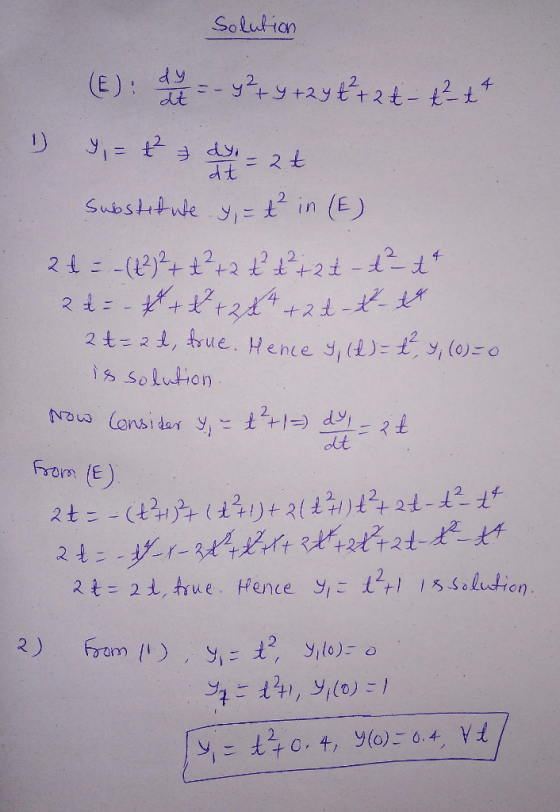 Solution
(E): dy/dt = - y² + y + 2yt² + 2t - t² - t⁴
1) y₁ = t² ⇒ dy₁/dt = 2t
Substitute y₁ = t² in (E)
2t = -(t²)² + t² + 2t²t² + 2t - t² - t⁴
2t = - t⁴ + t² + 2t⁴ + 2t - t² - t⁴
2t = 2t, true. Hence y₁(t) = t², y₁(0) = 0
is solution.
Now Consider y₁ = t² + 1 ⇒ dy₁/dt = 2t
From (E)
2t = - (t²+1)² + (t²+1) + 2(t²+1)t² + 2t - t² - t⁴
2t = - t⁴ - 1 - 2t² + t² + 1 + 2t⁴ + 2t² + 2t - t² - t⁴
2t = 2t, true. Hence y₁ = t² + 1 is solution.
2) From (1), y₁ = t², y₁(0) = 0
= t² + 1, y₁(0) = 1
y₁ = t² + 0.4, y(0) = 0.4, ∀t